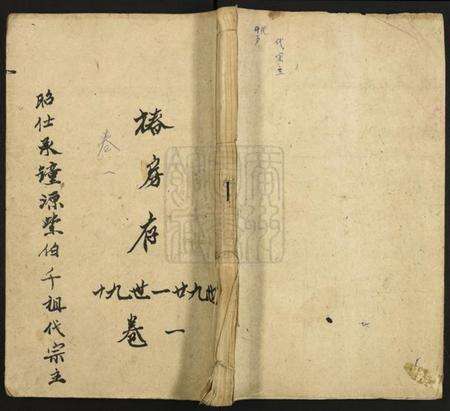 代宗主
椿房存
十九世一廿九世
卷一
卷一
昭仕承鐘源紫伯千祖代宗主